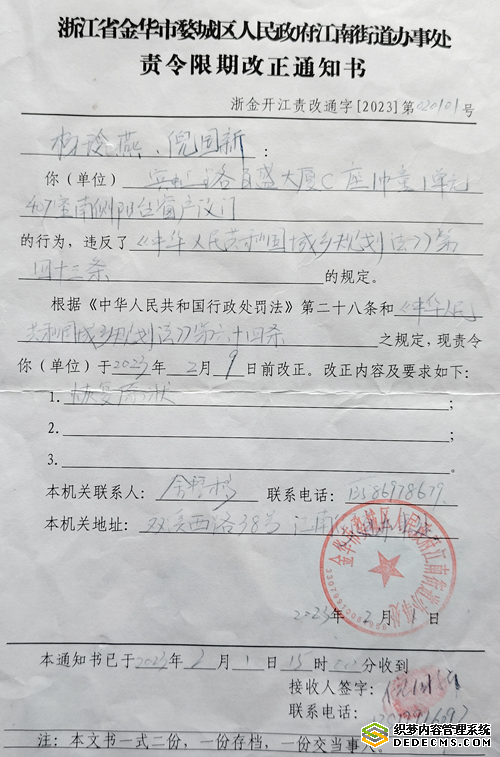 浙江省金华市婺城区人民政府江南街道办事处
责令限期改正通知书
浙金开江责改通字[2023]第020101号
杨玲燕、倪国新:
你(单位)宾虹路百盛大厦C座1单元
407室南侧阳台窗户设门
的行为,违反了《中华人民共和国城乡规划法》第
四十三条的规定。
根据《中华人民共和国行政处罚法》第二十八条和《中华人民
共和国城乡规划法》第六十四条之规定,现责令
你(单位)于2023年2月9日前改正。改正内容及要求如下:
1. 恢复原状;
2. ;
3. 。
本机关联系人: 联系电话:
本机关地址: 双溪西路38号江南
金华市婺城区人民政府江南街道办事处
2023年2月1日
本通知书已于2023年2月1日15时分收到
接收人签字: 倪国新
联系电话:
注:本文书一式二份,一份存档,一份交当事人。
织梦内容管理系统
DEDECMS.COM